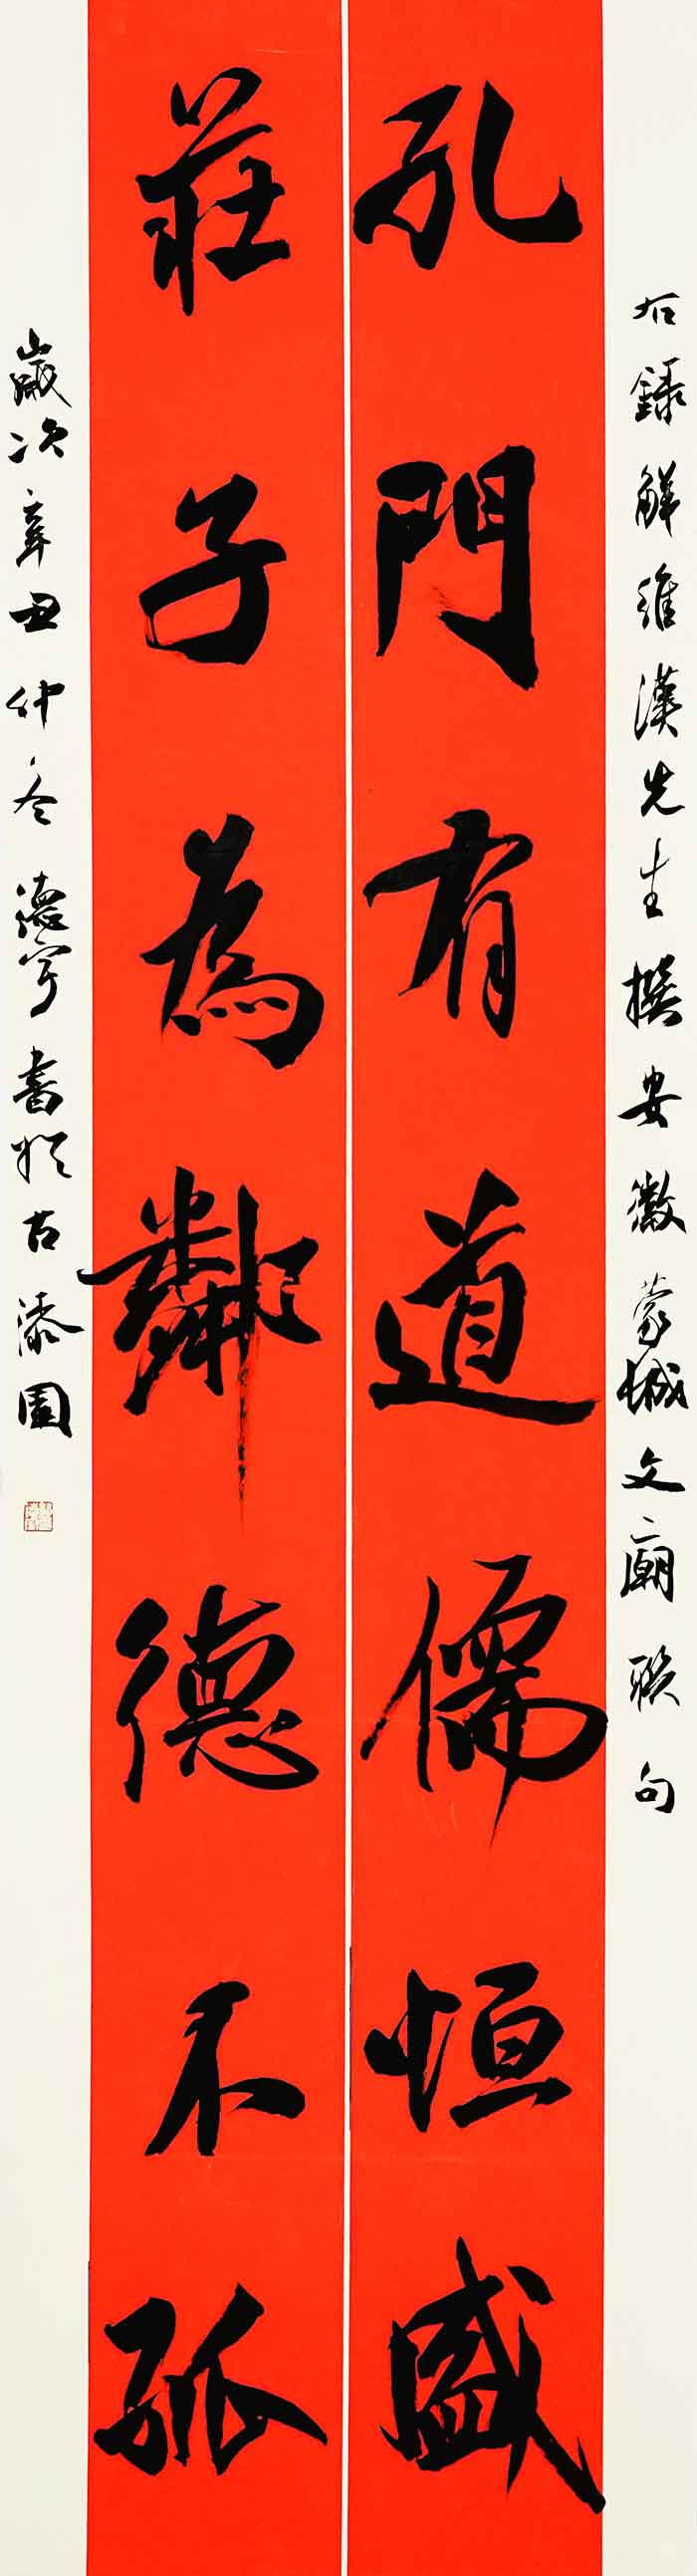 右錄解維漢先生撰安徽蒙城文廟聯句
孔門有道儒恒盛
莊子為鄰德不孤
歲次辛丑仲冬德宇書於古漆園